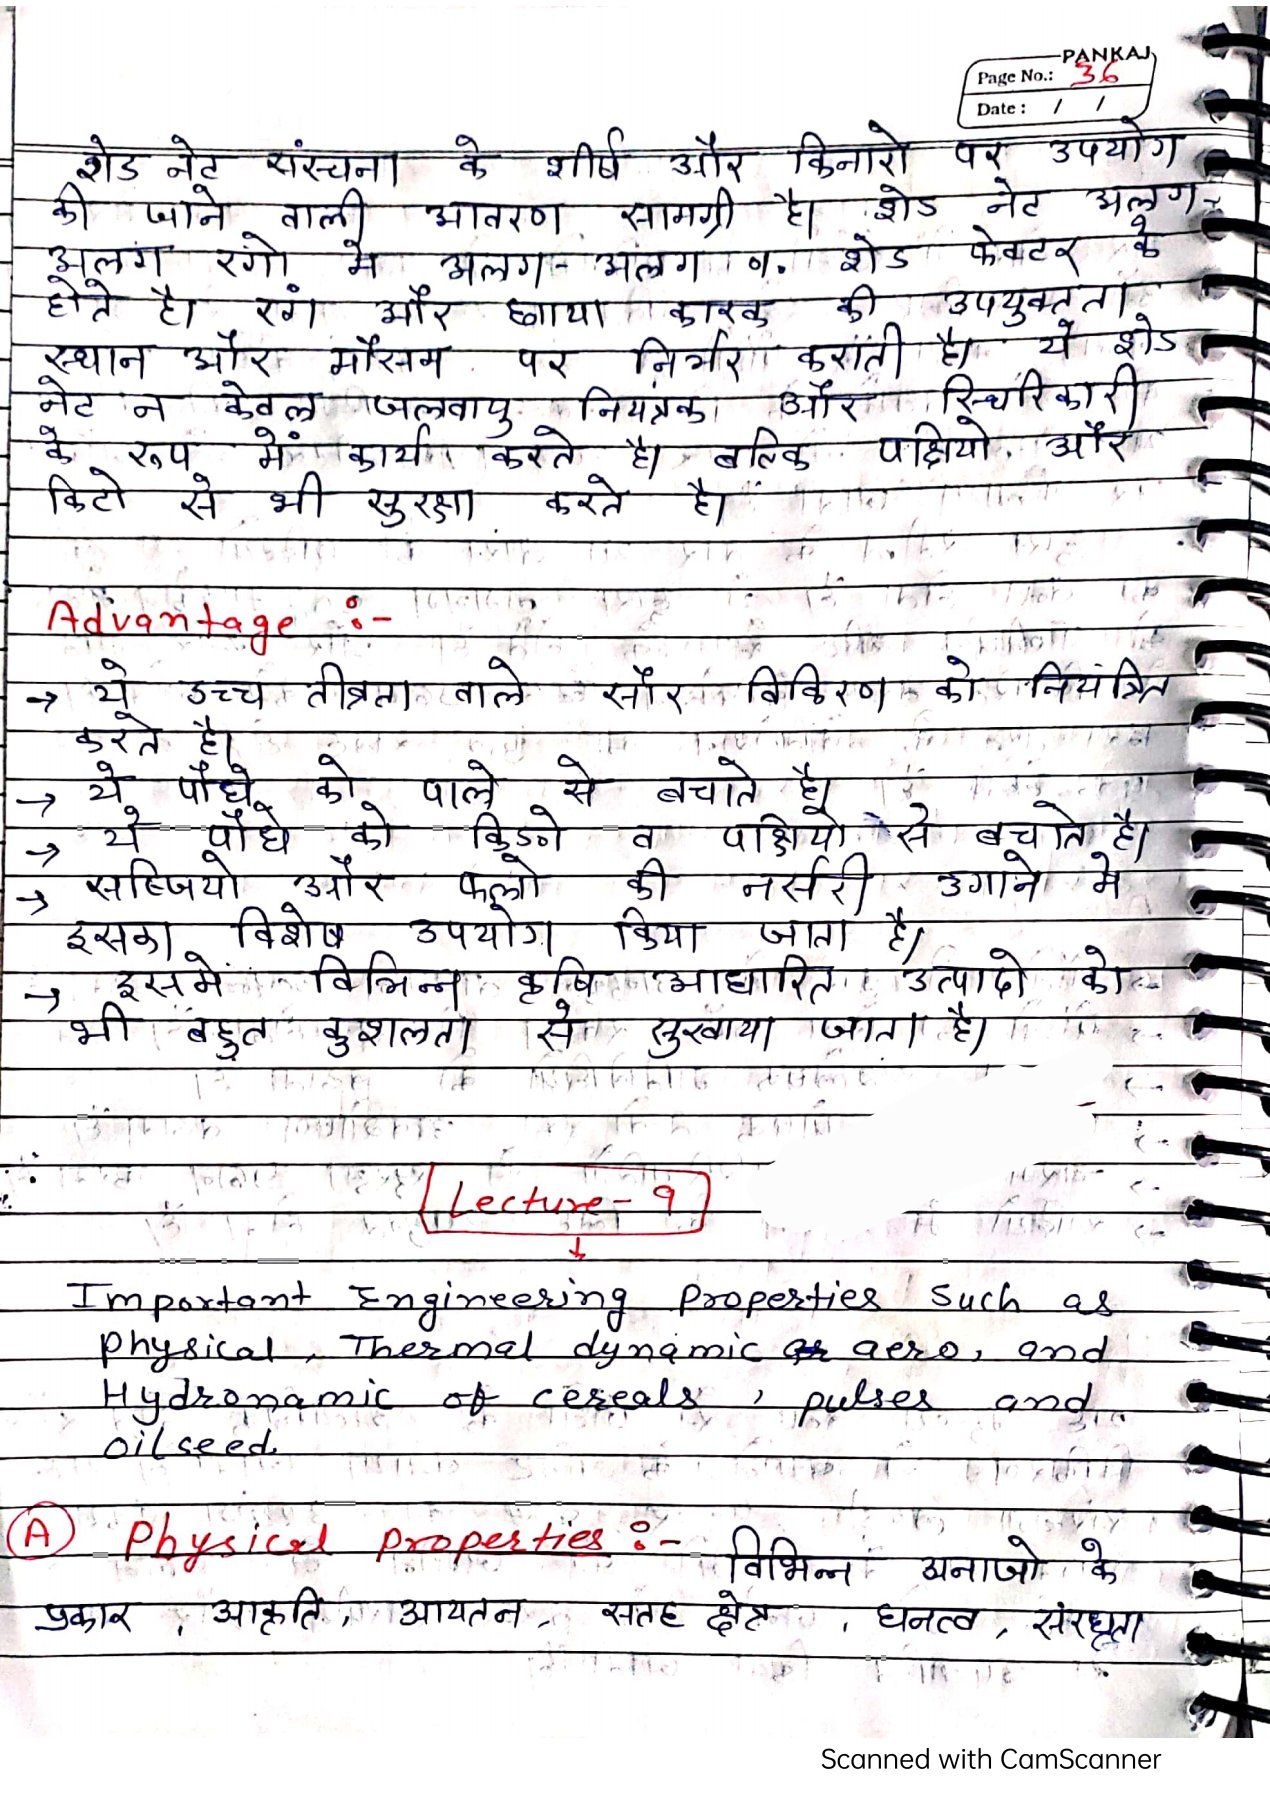 PANKAJ
Page No.: 36
Date : / /
शेड नेट संरचना के शीर्ष और किनारो पर उपयोग
की जाने वाली आवरण सामग्री है। शेड नेट अलग-
अलग रंगो मे अलग-अलग %. शेड फेक्टर के
होते है। रंग और छाया कारक की उपयुक्तता
स्थान और मौसम पर निर्भर कराती है। ये शेड
नेट न केवल जलवायु नियंत्रक और स्थिरिकारी
के रूप में कार्य करते है। बल्कि पक्षियो और
किटो से भी सुरक्षा करते है।
Advantage :-
→ ये उच्च तीव्रता वाले सौर विकिरण को नियंत्रित
करते है।
→ ये पौधे को पाले से बचाते है।
→ ये पौधे को किडो व पक्षियो से बचाते है।
→ सब्जियो और फलो की नर्सरी उगाने मे
इसका विशेष उपयोग किया जाता है।
→ इसमें विभिन्न कृषि आधारित उत्पादो को
भी बहुत कुशलता से सुखाया जाता है।
Lecture - 9
Important Engineering properties such as
physical, Thermal dynamic aero, and
Hydronamic of cereals, pulses and
oilseed.
(A) Physical properties :- विभिन्न अनाजो के
प्रकार, आकृति, आयतन, सतह क्षेत्र, घनत्व, संरध्रता
Scanned with CamScanner